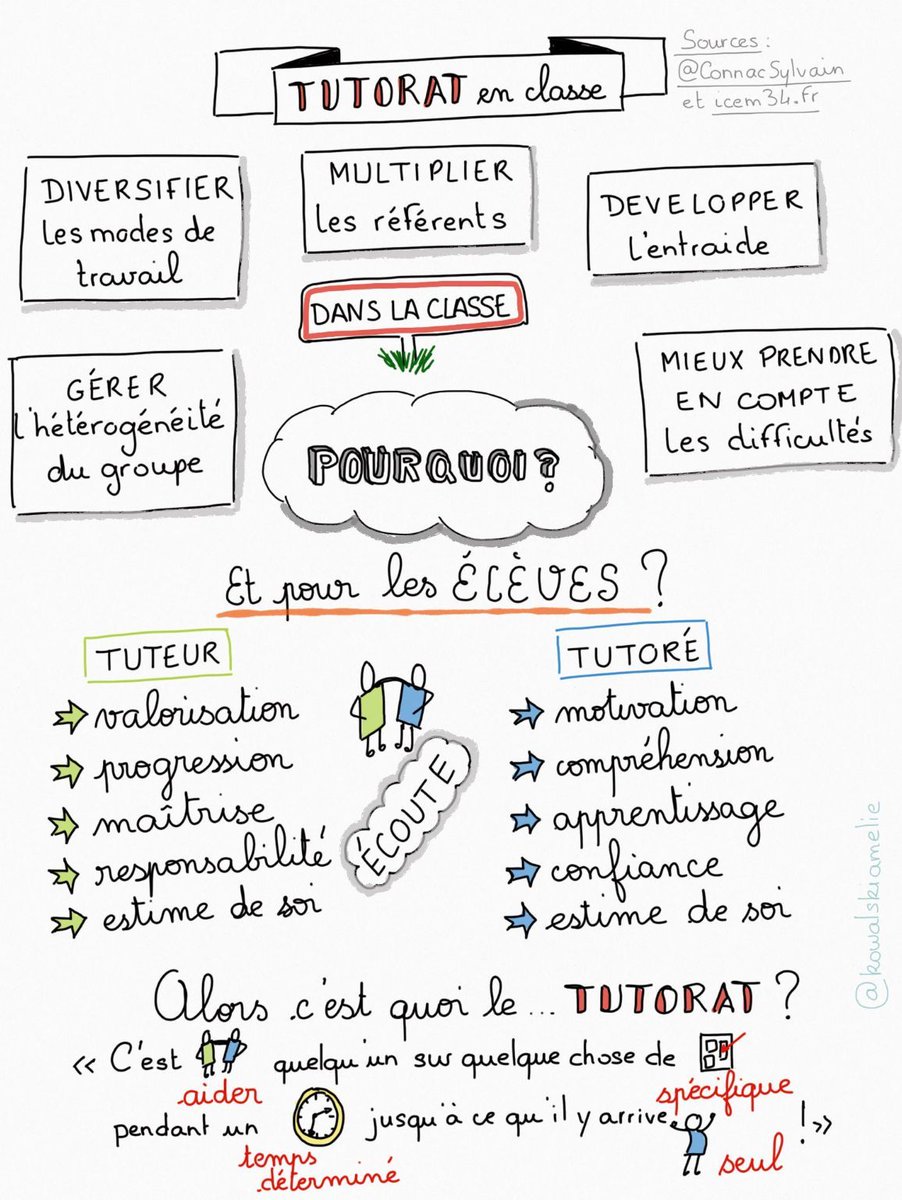 TUTORAT en classe
Sources :
@ConnacSylvain
et icem34.fr
DIVERSIFIER
les modes de
travail
MULTIPLIER
les référents
DEVELOPPER
l'entraide
DANS LA CLASSE
GÉRER
l'hétérogénéité
du groupe
POURQUOI ?
MIEUX PRENDRE
EN COMPTE
les difficultés
Et pour les ÉLÈVES ?
TUTEUR
valorisation
progression
maîtrise
responsabilité
estime de soi
ÉCOUTE
TUTORÉ
motivation
compréhension
apprentissage
confiance
estime de soi
@kowalskiamelie
Alors c'est quoi le ... TUTORAT ?
« C'est quelqu'un sur quelque chose de
aider spécifique
pendant un jusqu'à ce qu'il y arrive ! »
temps seul
déterminé